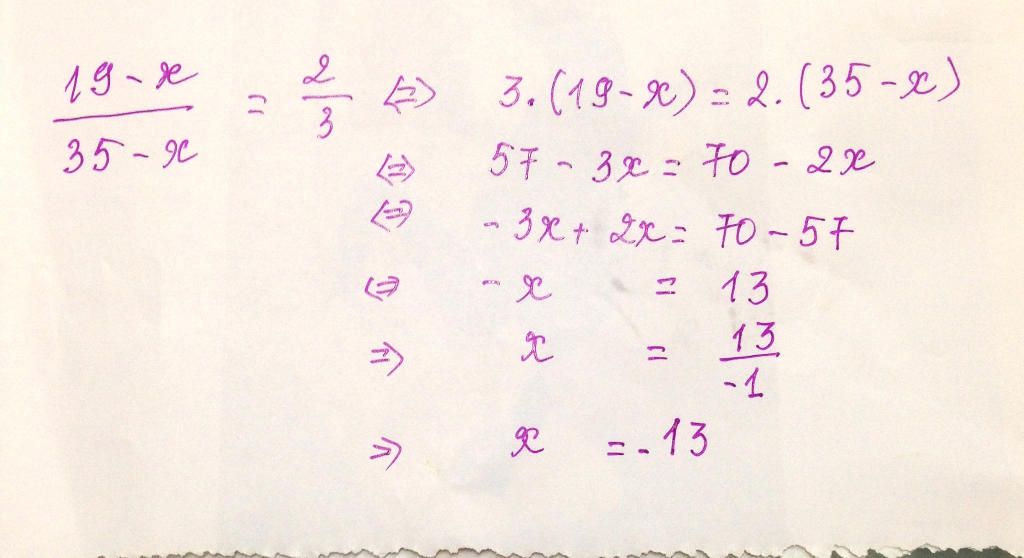 19 - x / 35 - x = 2/3 ⇔ 3.(19 - x) = 2.(35 - x)
⇔ 57 - 3x = 70 - 2x
⇔ - 3x + 2x = 70 - 57
⇔ - x = 13
⇒ x = 13/-1
⇒ x = - 13